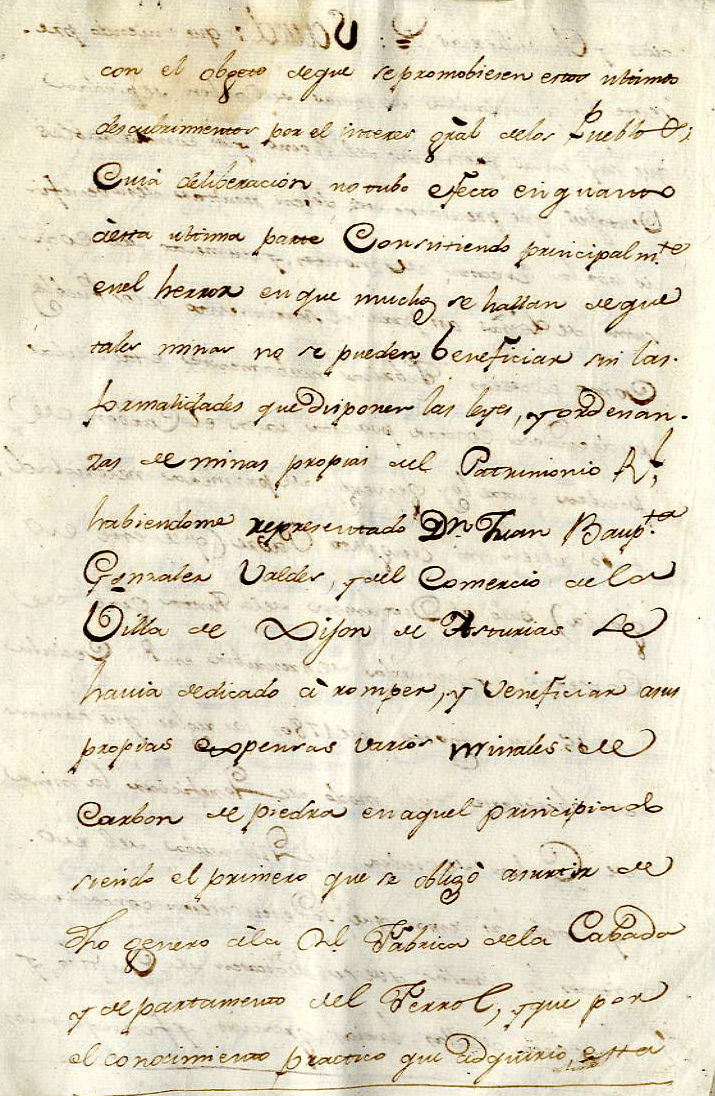 con el obgeto de que se promobiesen estos ultimos
descubrimentos por el interes gral de los Pueblos;
Cuia deliberacion no tubo efecto en quanto
à esta ultima parte Consistiendo principalmte
en el herror en que muchos se hallan de que
tales minas no se pueden beneficiar sin las
formalidades que disponen las leyes, y ordenan-
zas de minas propias del Patrimonio Rl,
habiendome representado Dn Juan Baupta
Gonzalez Valdes, y del Comercio de la
Villa de Xijon de Asturias se
havia dedicado à romper, y veneficiar asus
propias expensas varios minales de
Carbon de piedra en aquel principiado
siendo el primero que se obligò asurtir de
dho genero àla Rl Fabrica dela Cabada
y departamento del Ferrol, y que por
el conocimiento practico que adquirio esta